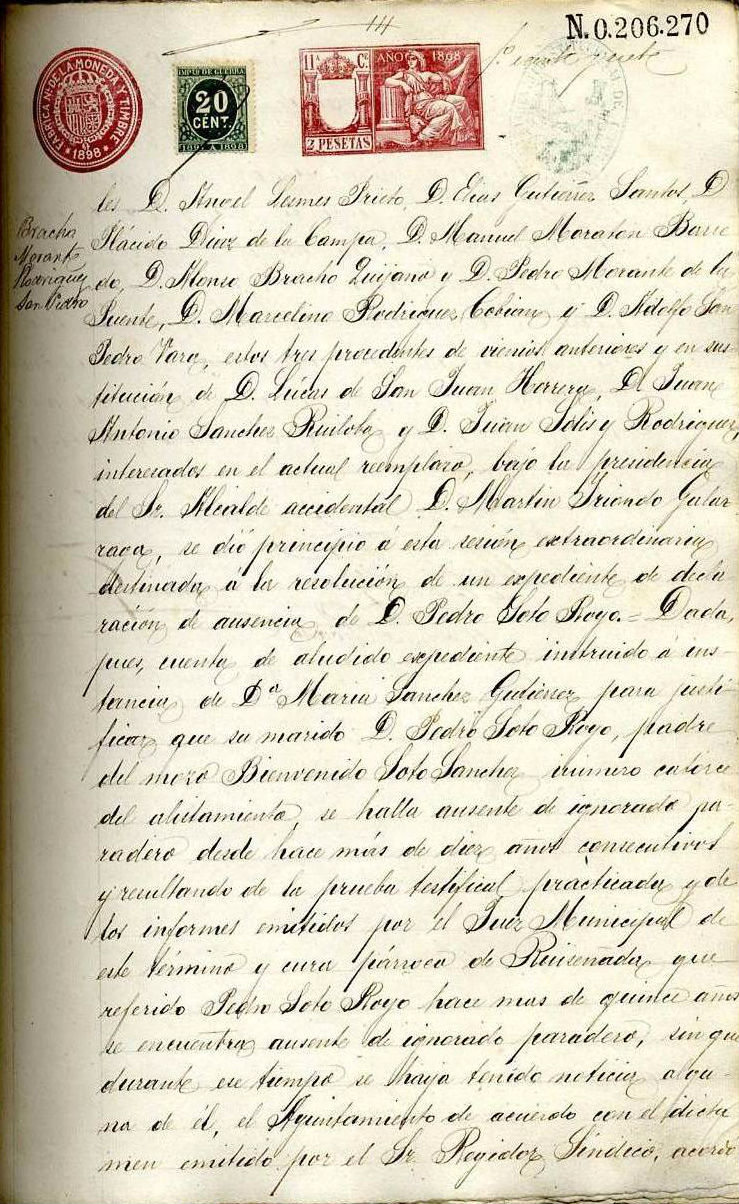 N.0.206.270
FABRICA Nl. DE LA MONEDA Y TIMBRE
1898
IMPTO DE GUERRA
20
CENT.
1897 A 1898
11ª Cª
AÑO 1898
2 PESETAS
Bracho
Morante
Rodriguez
San Pedro
les D. Angel Lesmes Prieto, D. Elias Gutierrez Santos, D
Plácido Diaz de la Campa, D. Manuel Moraton Barre
do, D. Alonso Bracho Quijano y D. Pedro Morante de la
Fuente, D. Marcelino Rodriguez Cobian y D. Adolfo San
Pedro Vara, estos tres procedentes de vienios anteriores y en sus-
titución de D. Lúcas de San Juan Herrera, D. Juan
Antonio Sanchez Ruiloba y D. Juan Solis y Rodriguez,
interesados en el actual reemplazo, bajo la presidencia
del Sr. Alcalde accidental D. Martin Iriondo Galar
raga, se dió principio á esta sesión extraordinaria
destinada a la resolución de un expediente de decla
ración de ausencia de D. Pedro Soto Royo.= Dada,
pues, cuenta de aludido expediente instruido á ins-
tancia de Dª Maria Sanchez Gutierrez para justi-
ficar que su marido D. Pedro Soto Royo, padre
del mozo Bienvenido Soto Sanchez numero catorce
del alistamiento, se halla ausente de ignorado pa-
radero desde hace más de diez años consecutivos
y resultando de la prueba testifical practicada y de
los informes emitidos por el Juez Municipal de
este término y cura párroco de Ruiseñada, que
referido Pedro Soto Royo hace mas de quince años
se encuentra ausente de ignorado paradero, sin que
durante ese tiempo se haya tenido noticia algu-
na de él, el Ayuntamiento de acuerdo con el dicta
men emitido por el Sr. Regidor Sindico, acordó